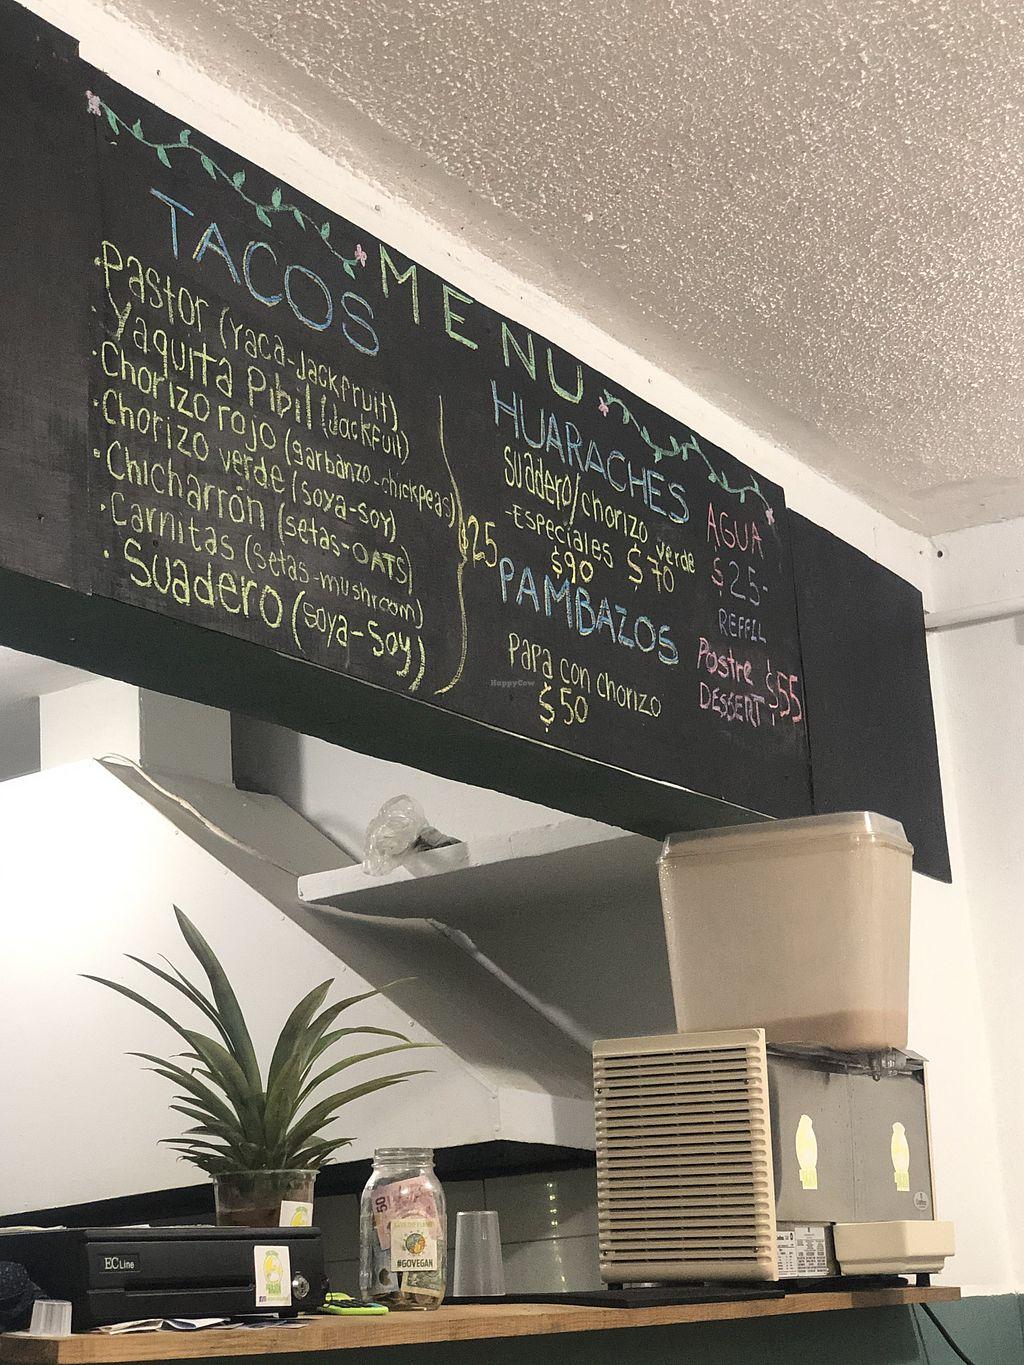 MENU
TACOS
·Pastor (Yaca-Jackfruit)
·Yaquita Pibil (Jackfuit)
·Chorizo rojo (garbanzo-chickpeas)
·Chorizo verde (soya-soy)
·Chicharrón (setas-OATS)
·Carnitas (setas-mushroom)
·Suadero (soya-soy)
$25
HUARACHES
Suadero/chorizo verde
-Especiales $70
$90
PAMBAZOS
Papa con chorizo
$50
AGUA
$25-
REFFIL
Postre $55
DESSERT
HappyCow
EC Line
50
#GOVEGAN